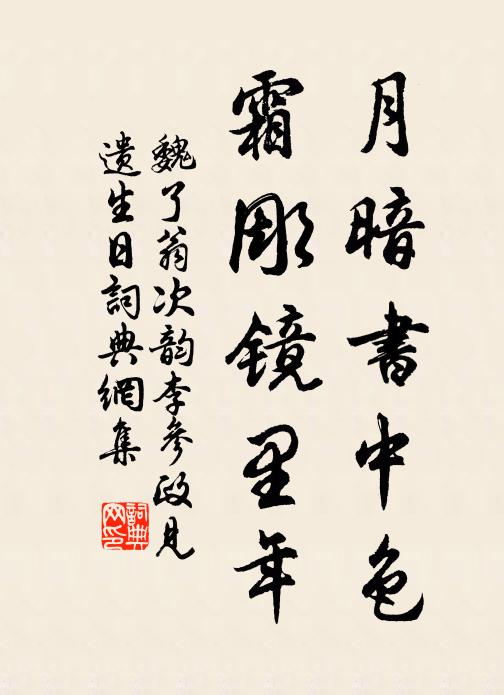 月暗書中色
霜彫镜里年
魏了翁次韵李參政見
遺生日詞典網集
詞典网印